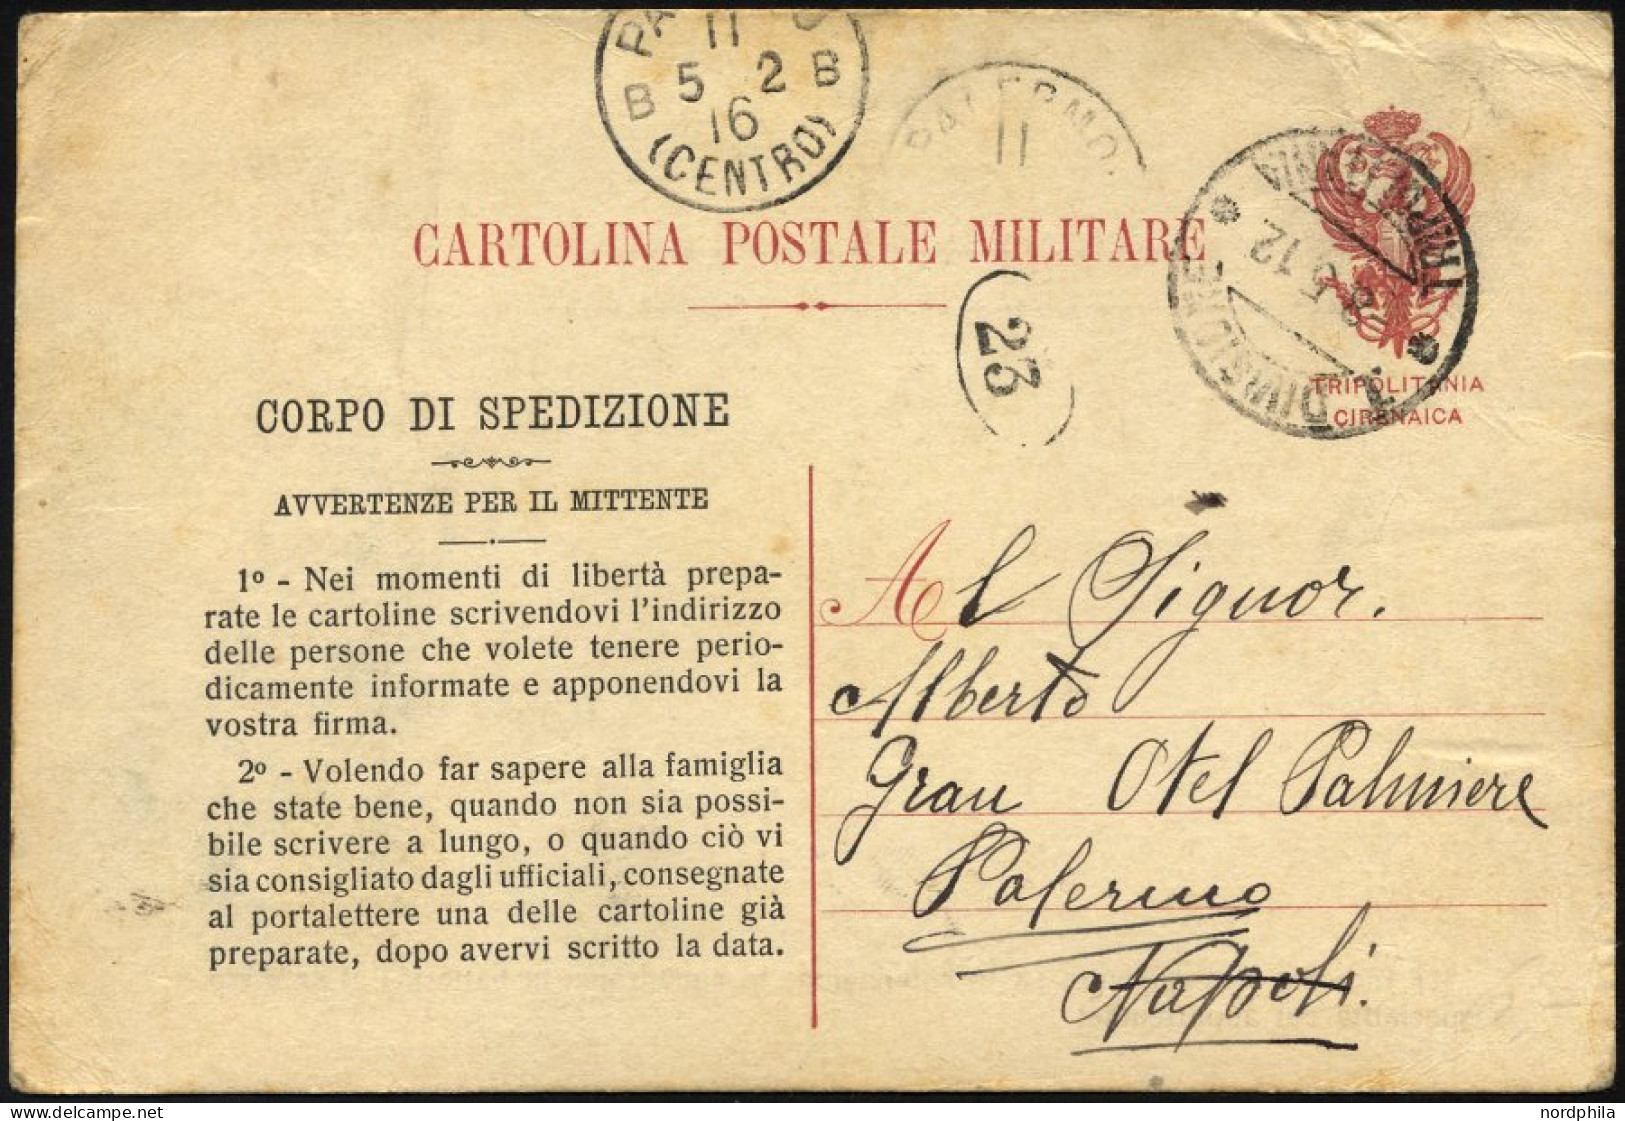 11
5 2
B B
16
(CENTRO)
PALERMO
11
CARTOLINA POSTALE MILITARE
TRIPOLITANIA
8.5.12
DIVISIONE
23
TRIPOLITANIA
CIRENAICA
CORPO DI SPEDIZIONE
AVVERTENZE PER IL MITTENTE
1º - Nei momenti di libertà prepa-
rate le cartoline scrivendovi l'indirizzo
delle persone che volete tenere perio-
dicamente informate e apponendovi la
vostra firma.
2º - Volendo far sapere alla famiglia
che state bene, quando non sia possi-
bile scrivere a lungo, o quando ciò vi
sia consigliato dagli ufficiali, consegnate
al portalettere una delle cartoline già
preparate, dopo avervi scritto la data.
Al Signor.
Alberto
Gran Otel Palmiere
Palermo
Napoli.
nordphila.com